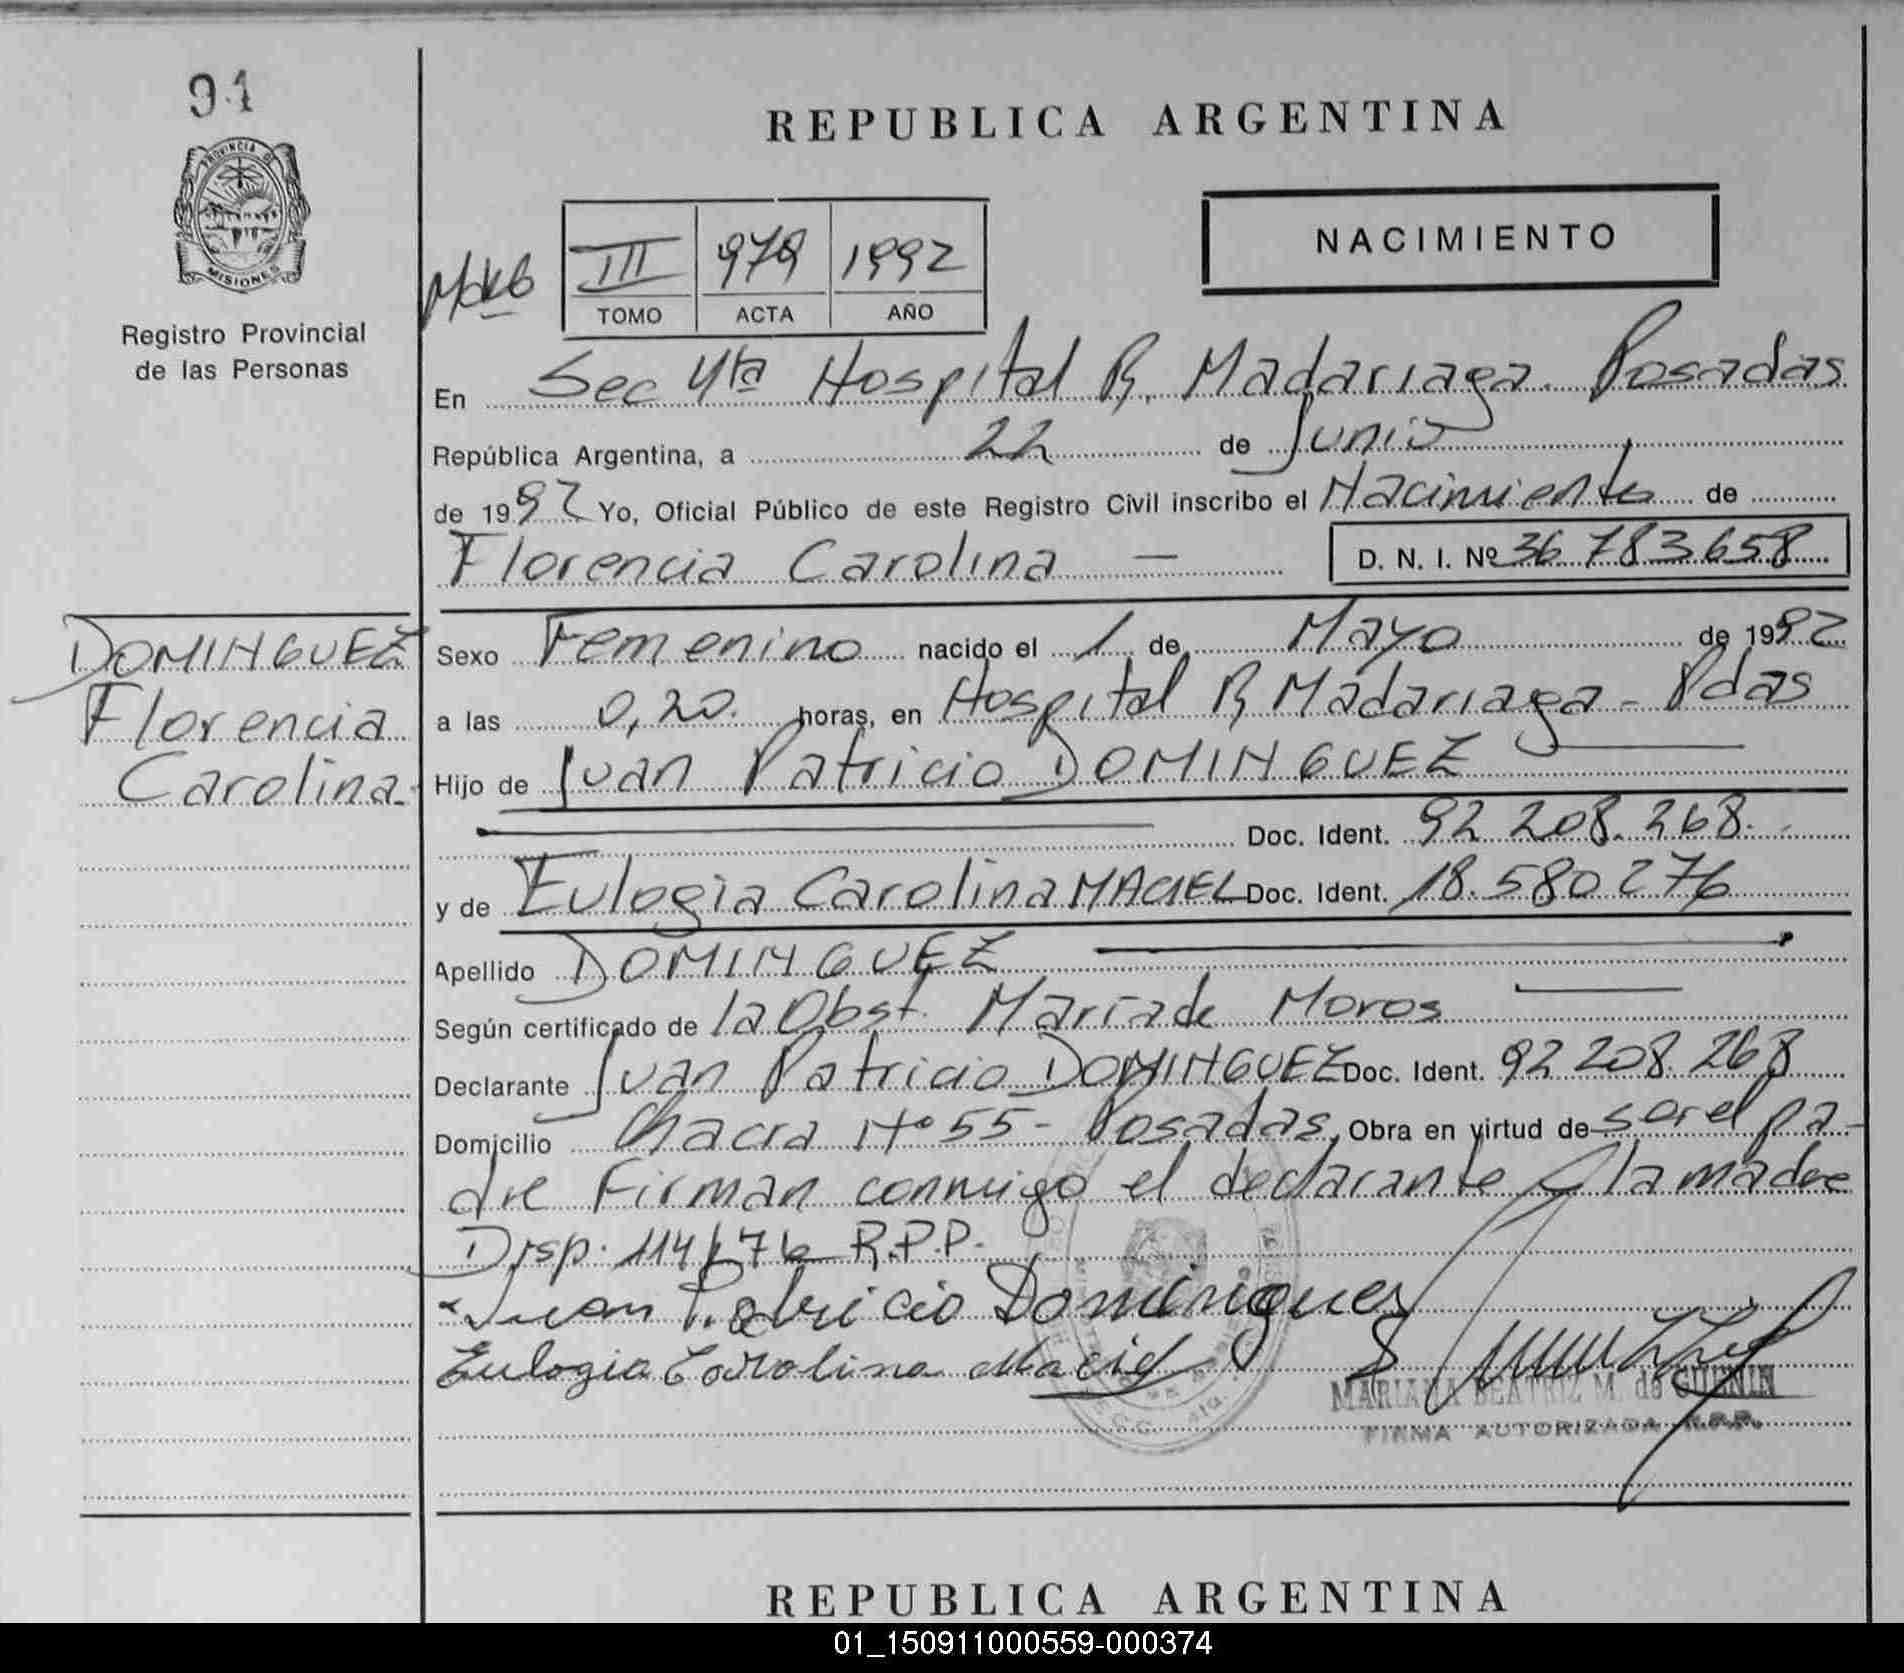 91
REPUBLICA ARGENTINA
PROVINCIA DE
MISIONES
Registro Provincial
de las Personas
NACIMIENTO
III 979 1992
TOMO ACTA AÑO
En Sec 4ta Hospital R. Madariaga. Posadas
República Argentina, a 22 de Junio
de 1992 Yo, Oficial Público de este Registro Civil inscribo el Nacimiento de
Florencia Carolina — D. N. I. Nº 36.783.658
DOMINGUEZ
Florencia
Carolina
Sexo Femenino nacido el 1 de Mayo de 1992
a las 0,20. horas, en Hospital R Madariaga - Pdas
Hijo de Juan Patricio DOMINGUEZ
Doc. Ident. 92 208.268.
y de Eulogia Carolina MACIEL Doc. Ident. 18.580276
Apellido DOMINGUEZ
Según certificado de la Obst. Maria de Moros
Declarante Juan Patricio DOMINGUEZ Doc. Ident. 92 208.268
Domicilio Chacra Nº 55 - Posadas, Obra en virtud de ser el pa-
dre Firman conmigo el declarante y la madre
Disp. 114/76 R.P.P.
Juan Patricio Domingues
Eulogia Carolina Maciel
MARIANA BEATRIZ M. de
FIRMA AUTORIZADA R.P.P.
REPUBLICA ARGENTINA
01_150911000559-000374